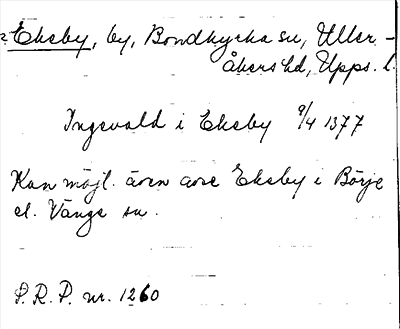 Eksby, by, Bondkyrka sn, Uller-
åkers hd, Upps. l.
Ingevald i Eksby 9/4 1377
Kan möjl. även avse Eksby i Börje
el. Vänge sn.
P.R.P. nr. 1260